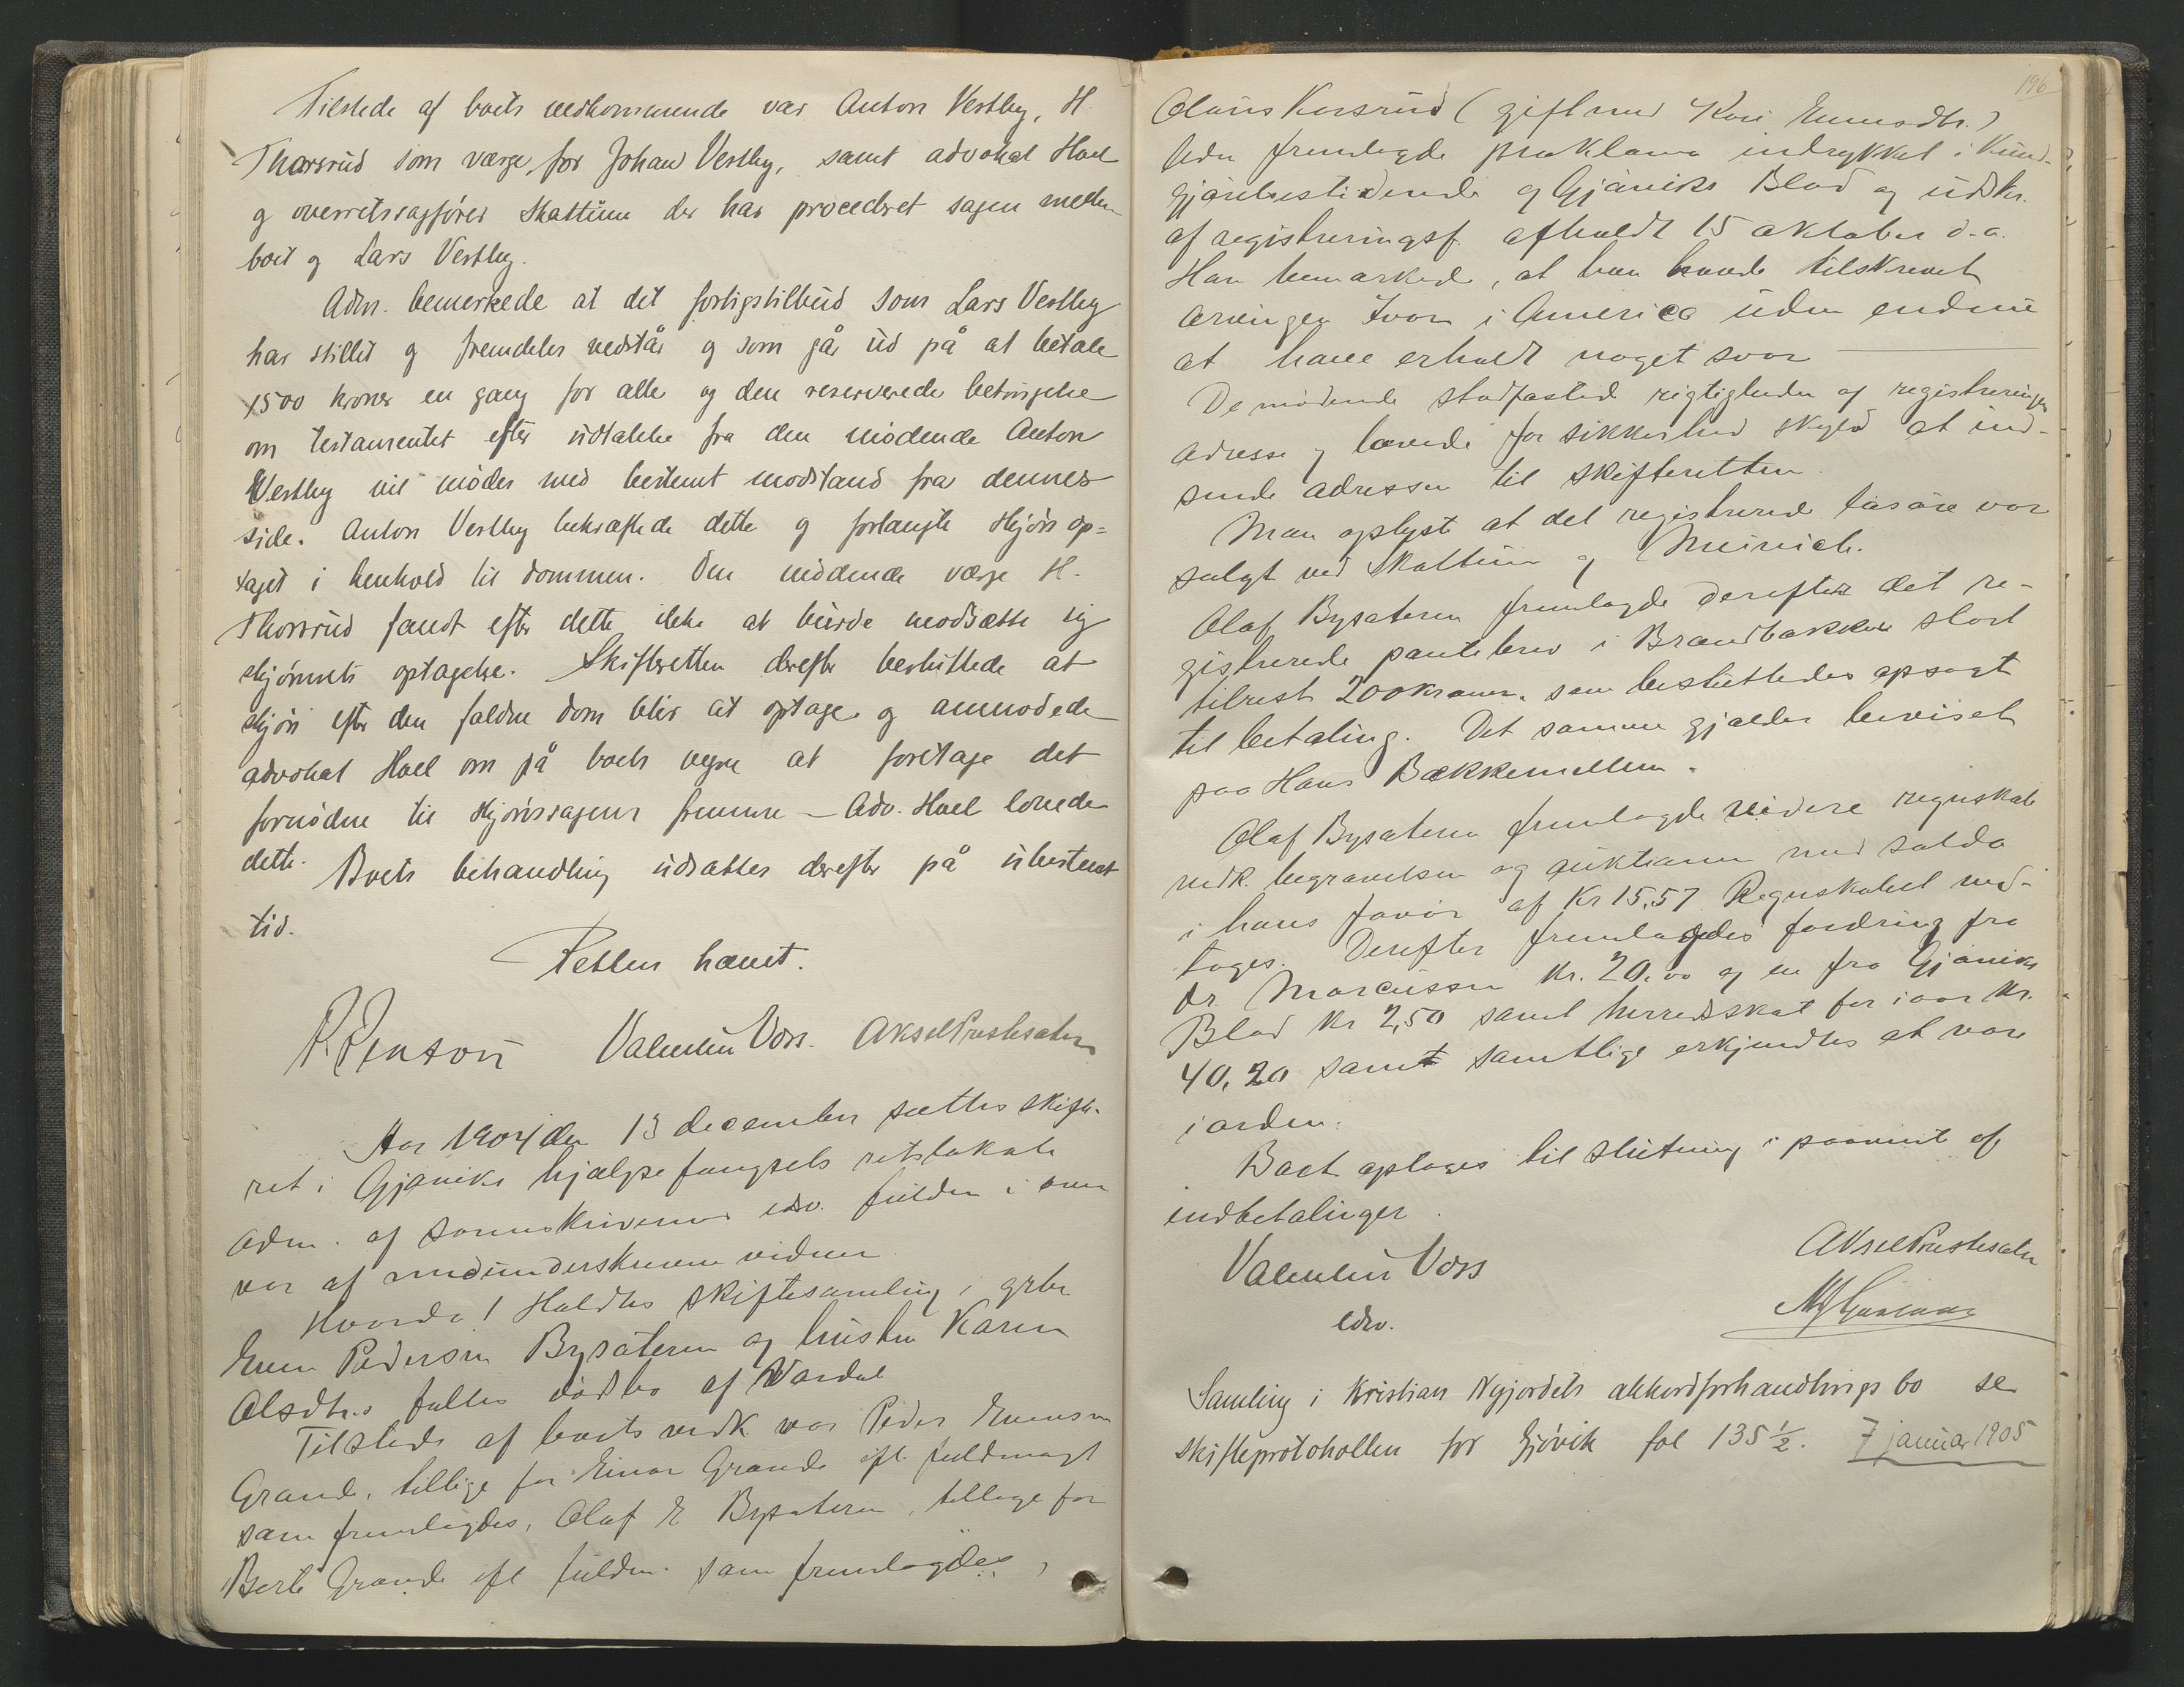 Tilstede af boets vedkommende var Anton Vestby, H.
Thorsrud som værge for Johan Vestby, samt advokat Hoel
og overretssagfører Skattum der har procederet sagen mellem
boet og Lars Vestby.
Adm. bemerkede at det forligstilbud som Lars Vestby
har stillet og fremdeles vedstår og som går ud på at betale
1500 kroner en gang for alle og den reserverede betingelse
om testamentet efter udtalelse fra den mødende Anton
Vestby vil mødes med bestemt modstand fra dennes
side. Anton Vestby bekræftede dette og forlangte skjøn op=
taget i henhold til dommen. Den mødende værge H.
Thorsrud fandt efter dette ikke at burde modsætte sig
skjønnets optagelse. Skifteretten derefter besluttede at
skjøn efter den faldne dom blir at optage og anmodede
advokat Hoel om på boets vegne at foretage det
fornødne til skjønssagens fremme — Adv. Hoel lovede
dette. Boets behandling udsættes derefter på ubestemt
tid.
Retten hævet.
P. Jenson Valentin Voss. Aksel Præstesæter
Aar 1904 den 13 december sættes skifte-
ret i Gjøviks hjælpefængsels retslokale
adm. af sorenskriveren edsv. fuldm. i over
vær af medunderskrevne vidner
Hvorda! Holdtes skiftesamling i grbr
Even Pedersen Bysæteren og hustru Karen
Olsdtrs fælles dødsbo af Vardal
Tilstede af boets vedk var Peder Evensen
Grande, tillige for Einar Grande ifl. fuldmagt
som fremlagdes, Olaf E Bysæteren, tillige for
Berte Grande ifl fuldm. som fremlagdes,
196
Olaus Korsrud (gift med Kari Evensdtr.)
Adm fremlagde proklama indrykket i Kund-
gjørelsestidende og Gjøviks Blad og udskr.
af registreringsf. afholdt 15 oktober d.a.
Han bemærkede, at han havde tilskrevet
arvingen Ivar i America uden endnu
at have erholdt noget svar
De mødende stadfæsted rigtigheden af registreringen
adresse og lovede for sikkerhed skyld at ind-
sende adressen til skifteretten.
Man oplyst at det registrerede løsøre var
solgt ved Skattum og Meinich.
Olaf Bysæteren fremlagde derefter det re-
gistrerede pantebrev i Brandbakken stort
tilrest 200 kroner. som besluttedes opsagt
til betaling. Det samme gjælder beviset
paa Hans Bækkemellem.
Olaf Bysæteren fremlagde videre regnskab
vedk. begravelsen og auktionen med saldo
i hans favør af Kr 15,57 Regnskabet ved-
toges. Derefter fremlagdes fordring fra
dr. Marcussen Kr. 20.00 og en fra Gjøviks
Blad Kr 2,50 samt herredsskat for i aar Kr.
40,20 samt samtlige erkjendtes at være
i orden.
Boet optages til slutning i paavente af
indbetalinger.
Valentin Voss
edsv.
Aksel Præstesæter
Samling i Kristian Nyjordets akkordforhandlings bo se
skifteprotokollen for Gjøvik fol 135 ½. 7 januar 1905